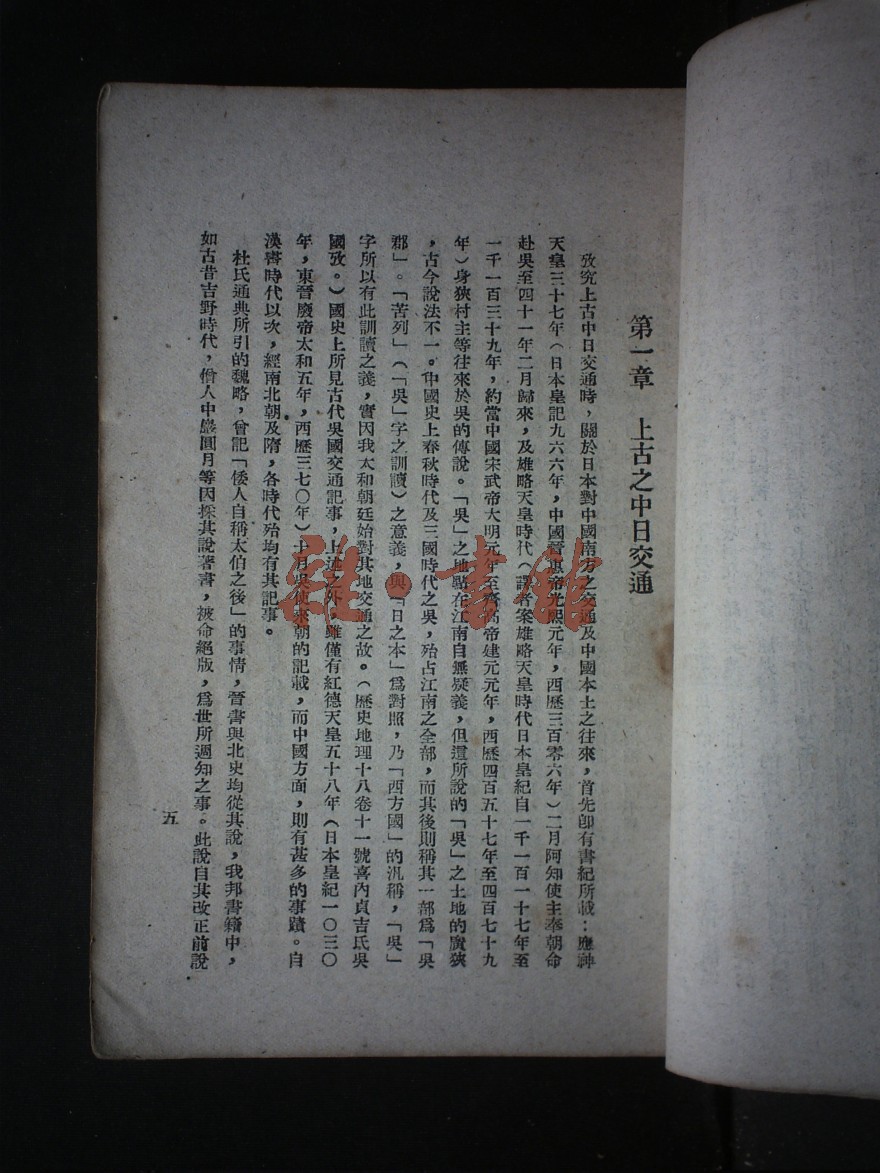 第一章　上古之中日交通
攷究上古中日交通時，關於日本對中國南方之交通及中國本土之往來，首先卽有書紀所載：應神
天皇三十七年（日本皇記九六六年，中國晉惠帝光熙元年，西曆三百零六年）二月阿知使主奉朝命
赴吳至四十一年二月歸來，及雄略天皇時代（譯者案雄略天皇時代日本皇紀自一千一百一十七年至
一千一百三十九年，約當中國宋武帝大明元年至齊高帝建元元年，西曆四百五十七年至四百七十九
年）身狹村主等往來於吳的傳說。「吳」之地點在江南自無疑義，但這所說的「吳」之土地的廣狹
，古今說法不一。中國史上春秋時代及三國時代之吳，殆占江南之全部，而其後則稱其一部爲「吳
郡」。「苦列」（「吳」字之訓讀）之意義，與「日之本」爲對照，乃「西方國」的汎稱，「吳」
字所以有此訓讀之義，實因我太和朝廷始對其地交通之故。（歷史地理十八卷十一號喜內貞吉氏吳
國攷。）國史上所見古代吳國交通記事，上述之外，雖僅有紅德天皇五十八年（日本皇紀一〇三〇
年，東晉廢帝太和五年，西曆三七〇年）十月吳使來朝的記載，而中國方面，則有甚多的事蹟。自
漢齊時代以次，經南北朝及隋，各時代殆均有其記事。
杜氏通典所引的魏略，曾記「倭人自稱太伯之後」的事情，晉書與北史均從其說，我邦書籍中，
如古昔吉野時代，僧人中巖圓月等因採其說著書，被命絕版，爲世所週知之事。此說自其改正前說
五